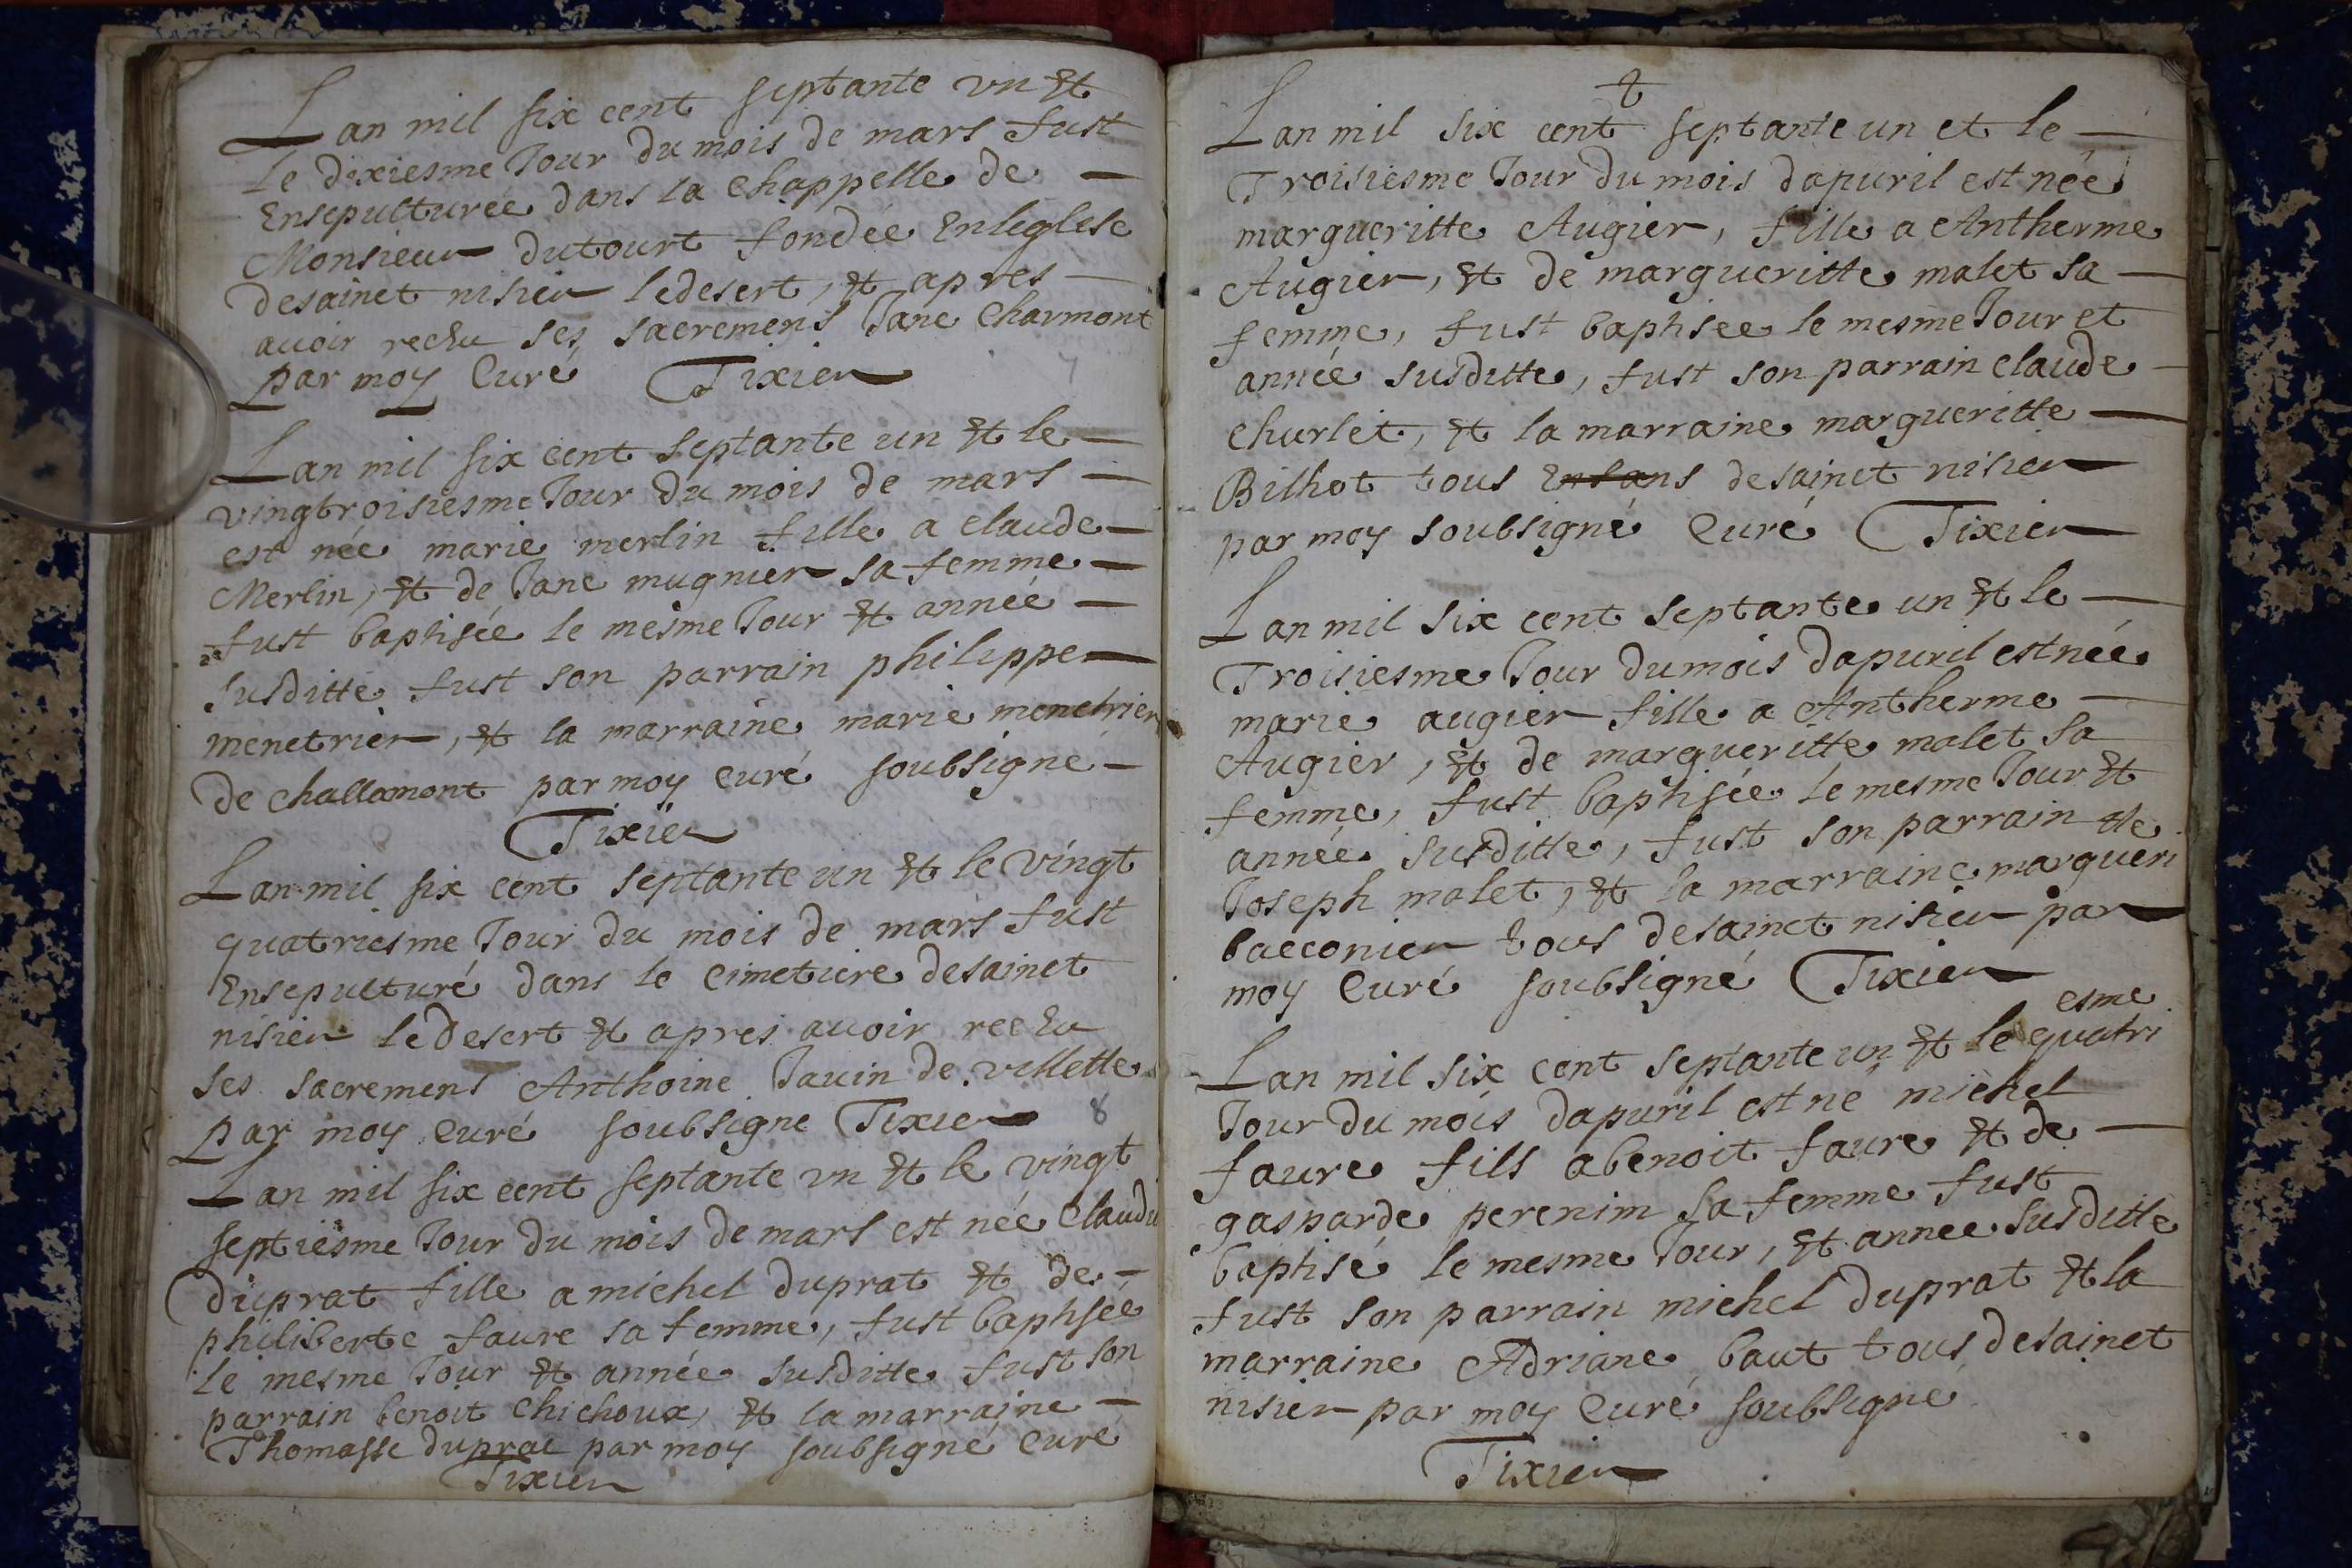 Lan mil six cent septante vn et
le dixiesme Jour du mois de mars fust
Ensepulturée dans la Chappelle de
Monsieur dutourt fondée Enleglise
desainct nisier ledesert, et apres
auoir rechu ses sacremens Jane Charmont
par moy Curé Tixier
7
Lan mil six cent septante un et le
vingtroisiesme Jour du mois de mars
est née marie merlin fille a claude
Merlin, et de Jane mugnier sa femme
fust baptisée le mesme Jour et année
susditte fust son parrain philippe
menetrier, et la marraine marie menetrier
de challamont par moy curé soubsigné
Tixier
Lan mil six cent septante un et le vingt
quatriesme Jour du mois de mars fust
Ensepulturé dans le Cimetiere desainct
nisier ledesert et apres auoir rechu
ses sacremens Anthoine Jauin de villette
par moy curé soubsigne Tixier
8
Lan mil six cent septante vn et le vingt
septiesme Jour du mois de mars est née Claudi
duprat fille a michel duprat et de
philiberte faure sa femme, fust baptisée
le mesme Jour et année susditte fust son
parrain benoit Chichoux, et la marraine
Thomasse duprat par moy soubsigné Curé
Tixier
Lan mil six cent septante un et le
Troisiesme Jour du mois dapuril est née
margueritte Augier, fille a Antherme
Augier, et de margueritte malet sa
femme, fust baptisee le mesme Jour et
année susditte, fust son parrain claude
churlet, et la marraine margueritte
Bilhot tous Enfans desainct nisier
par moy soubsigné Curé Tixier
Lan mil six cent septante un et le
Troisiesme Jour dumois dapuril est née
marie augier fille a Antherme
Augier, et de margueritte malet sa
femme, fust baptisée le mesme Jour et
année susditte, fust son parrain
tte
Joseph malet, et la marraine margueri
bacconier tous desainct nisier par
moy Curé soubsigné Tixier
esme
Lan mil six cent septante un et le quatri
Jour du mois dapuril est ne michel
faure fils abenoit faure et de
gasparde perenim sa femme fust
baptisé le mesme Jour, et annee susditte
fust son parrain michel duprat et la
marraine Adriane baut tous desainct
nisier par moy Curé soubsigné
Tixier